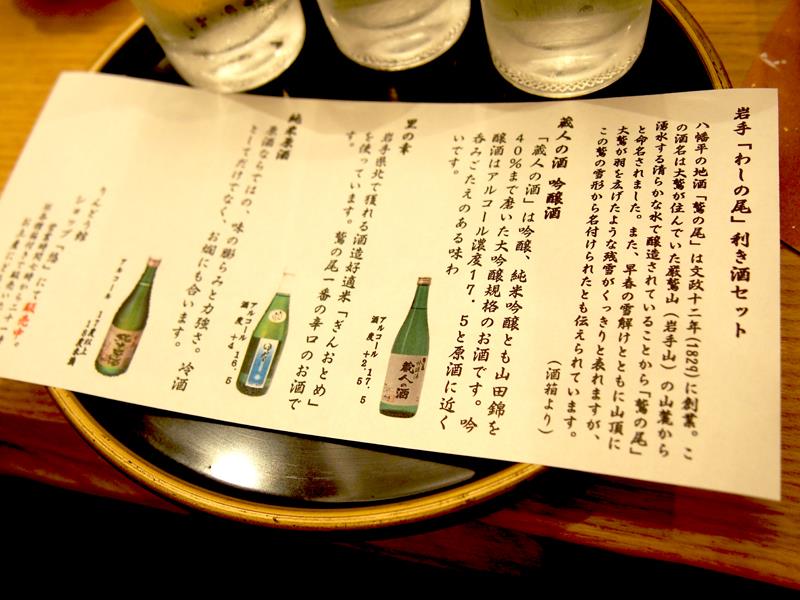 岩手「わしの尾」利き酒セット
八幡平の地酒「鷲の尾」は文政十二年(1829)に創業。こ
の酒名は大鷲が住んでいた巌鷲山（岩手山）の山麓から
湧水する清らかな水で醸造されていることから「鷲の尾」
と命名されました。また、早春の雪解けとともに山頂に
大鷲が羽を広げたような残雪がくっきりと表れますが、
この鷲の雪形から名付けられたとも伝えられています。
（酒箱より）
蔵人の酒 吟醸酒
「蔵人の酒」は吟醸、純米吟醸とも山田錦を
40%まで磨いた大吟醸規格のお酒です。吟
醸酒はアルコール濃度17.5と原酒に近く
呑みごたえのある味わ
いです。
アルコール 17.5
酒度 +2.5
蔵人の酒
里の幸
岩手県北で獲れる酒造好適米「ぎんおとめ」
を使っています。鷲の尾一番の辛口のお酒で
す。
アルコール 16.5
酒度 +4.5
純米原酒
原酒ならではの、味の膨らみと力強さ。冷酒
としてだけでなく、お燗にも合います。
アルコール
17度以上
18度未満
りんどう館
ショップ「陽」にて販売中。